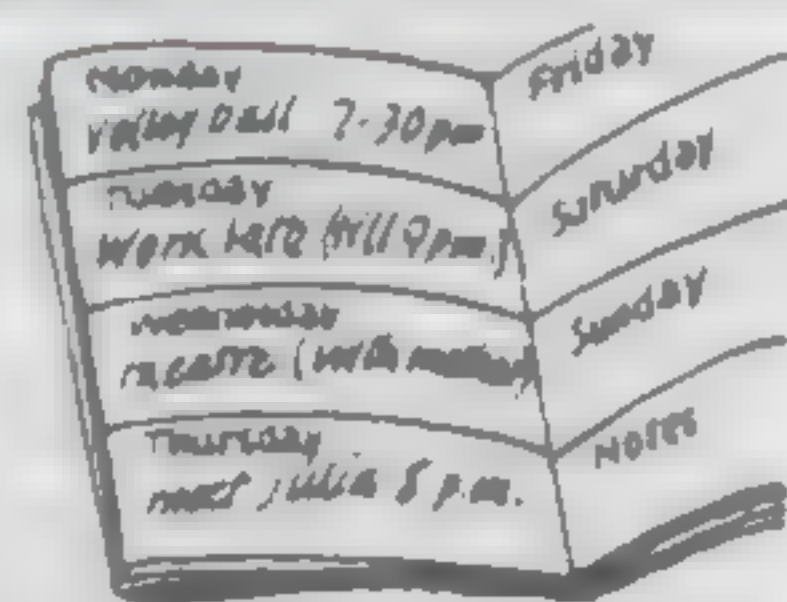 Monday
volley ball 7.30 pm
Tuesday
Work late (till 9 p.m.)
Wednesday
theatre (with mother)
Thursday
meet Julia 8 p.m.
Friday
Saturday
Sunday
Notes